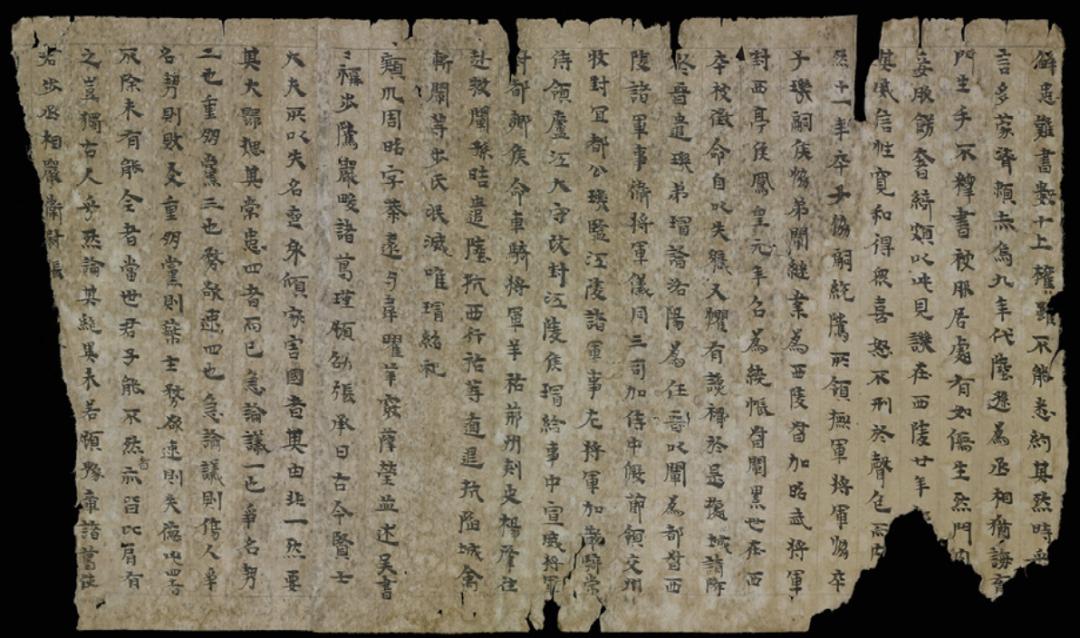 解患難書數十上權雖不能悉納其然時采
言多蒙濟賴赤烏九年代陸遜為丞相猶誨育
門生手不釋書被服居處有如儒生然門內
妾服飾奢綺頗以此見譏在西陵廿年
其威信性寬和得衆喜怒不形於聲色而內
然十一年卒子協嗣統騭所領撫軍將軍協卒
子璣嗣侯協弟闡繼業為西陵督加昭武將軍
封西亭侯鳳皇元年召為繞帳督闡累世在西
卒被徵命自以失職又懼有讒禍於是據城請降
於晉遣璣弟璿詣洛陽為任晉以闡為都督西
陵諸軍事衛將軍儀同三司加侍中假節領交州
牧封宜都公璣監江陵諸軍事左將軍加散騎常
侍領廬江太守改封江陵侯璿給事中宣威將軍
封都鄉侯命車騎將軍羊祜荊州刺史楊肇往
赴救闡孫晧遣陸抗西行祜等遁退抗陷城禽
斬闡等步氏泯滅唯璿紹祀
潁川周昭字恭遠與韋曜華覈薛瑩並述吳書
稱步騭嚴畯諸葛瑾顧邵張承曰古今賢士
大夫所以失名喪身傾家害國者其由非一然要
其大歸揔其常患四者而已急論議一也爭名勢
二也重朋黨三也務欲速四也急論議則傷人爭
名勢則敗友重朋黨則蔽主務欲速則失德此四者
不除未有能全者當世君子能不然者亦皆比肩有
之豈獨古人乎然論其絕異未若顧豫章諸葛使
君步丞相嚴衛尉張